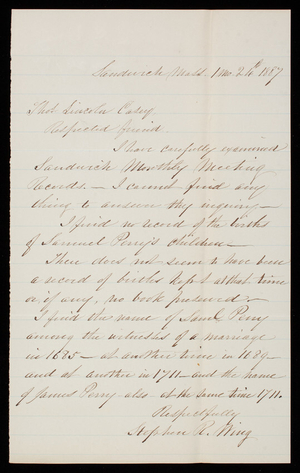 Sandwich Mass. 1mo. 24th 1887
Thos Lincoln Casey
Respected friend.
I have carefully examined
Sandwich Monthly Meeting
Records.— I cannot find any
thing to answer thy inquiry.—
I find no record of the births
of Samuel Perry's children.—
There does not seem to have been
a record of births kept at that time
or if any, no book preserved.—
I find the name of Saml Perry
among the witnesses of a marriage
in 1685— at another time in 1689—
and at another in 1711— and the name
of James Perry also at the same time 1711.
Respectfully
Stephen R. Wing